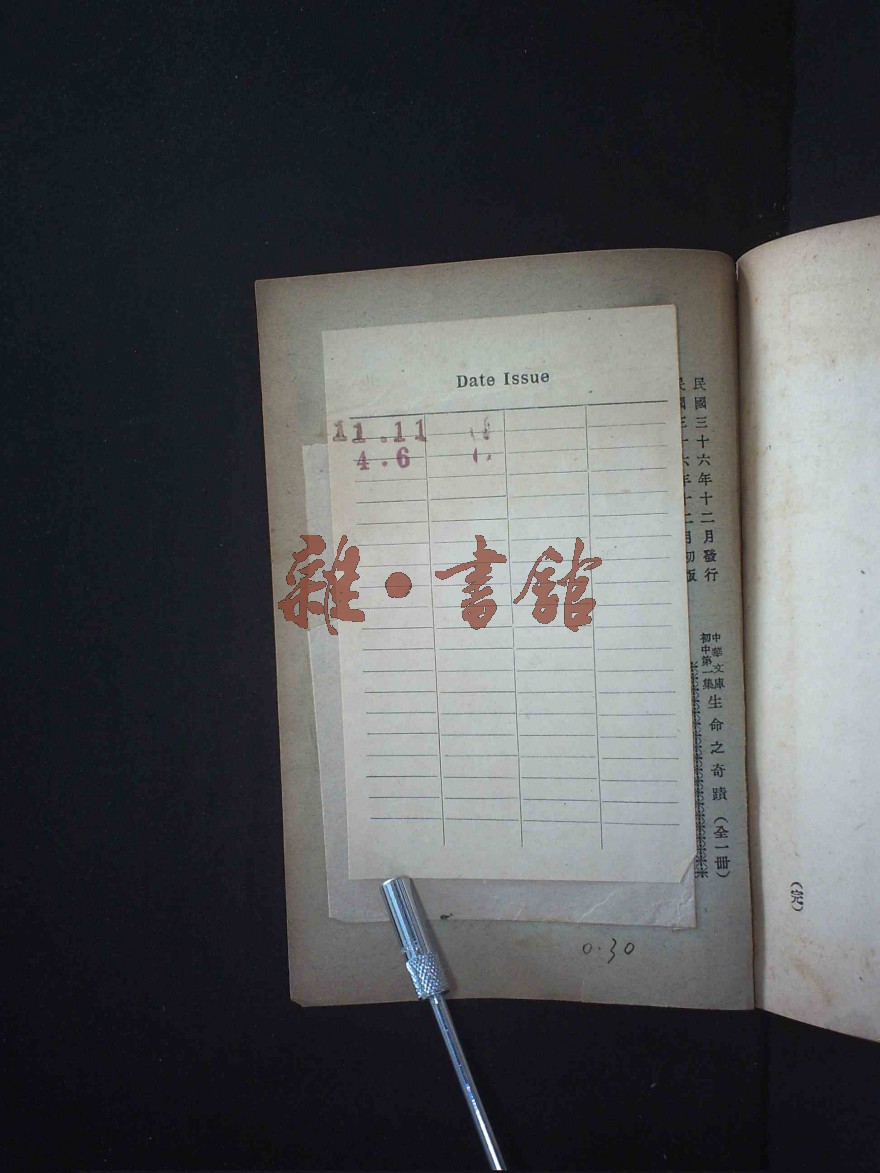 Date Issue
11.11
4.6
雜·書館
民國三十六年十二月發行
民國三十六年十二月初版
中華文庫
初中第一集
生命之奇蹟（全一冊）
（完）
0.30